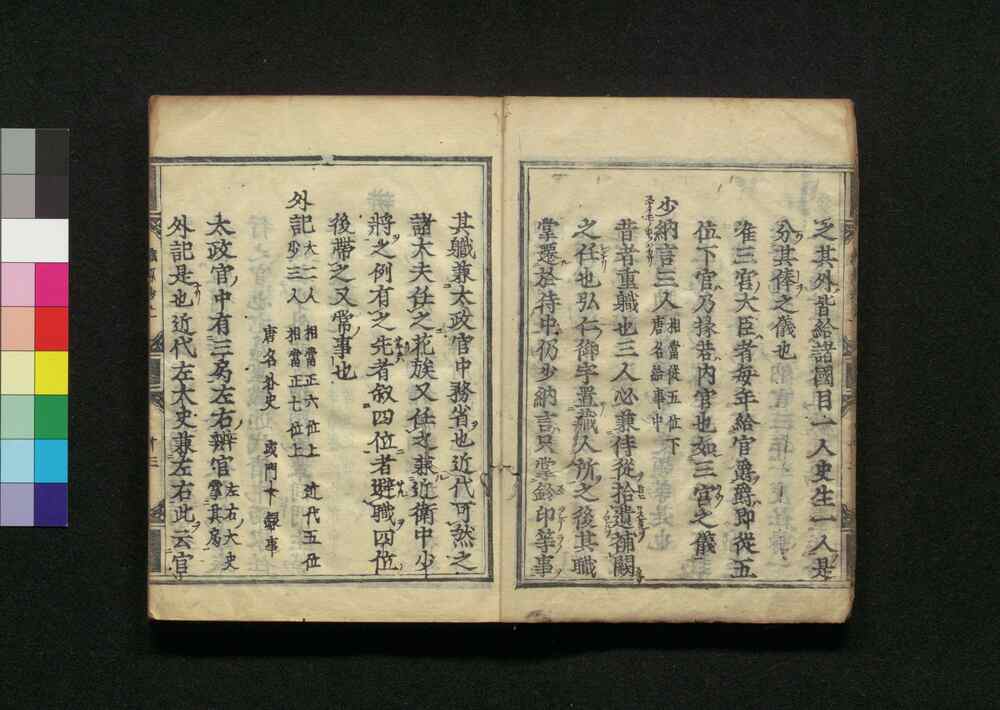 之其外皆給諸國目一人史生一人是
分其俸之儀也
准三宮大臣者毎年給官爵爵即從五
位下官乃掾若内官也如三宮之儀
少納言三人 相當從五位下 唐名給事中
昔者重職也三人必兼侍從拾遺補闕
之任也弘仁御宇置藏人所之後其職
掌遷於侍中仍少納言只掌鈴印等事
其職兼太政官中務省也近代可然之
諸大夫任之花族又任之兼近衛中少
將之例有之先者叙四位者避職四位
後帶之又常事也
外記 大二人 相當正六位上 近代五位
少三人 相當正七位上
唐名外史 或門下録事
太政官中有三局左右辨官 左右大史掌其局
外記是也近代左大史兼左右此云官